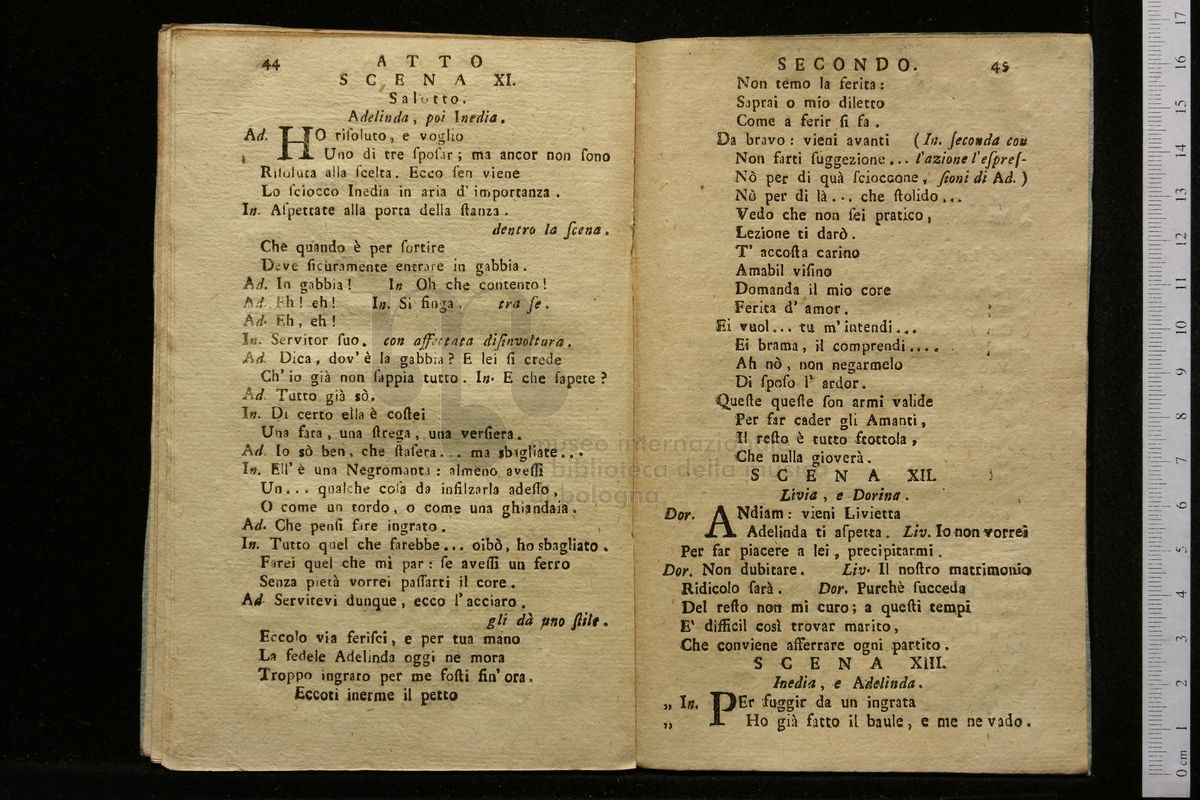 44 ATTO
SCENA XI.
Salotto.
Adelinda, poi Inedia.
Ad. HO riſoluto, e voglio
Uno di tre ſpoſar; ma ancor non ſono
Riſoluta alla ſcelta. Ecco ſen viene
Lo ſciocco Inedia in aria d'importanza.
In. Aſpettate alla porta della ſtanza.
dentro la ſcena.
Che quando è per ſortire
Deve ſicuramente entrare in gabbia.
Ad. In gabbia! In Oh che contento!
Ad. Eh! eh! In. Si finga. tra ſe.
Ad. Eh, eh!
In. Servitor ſuo. con affettata diſinvoltura.
Ad. Dica, dov'è la gabbia? E lei ſi crede
Ch'io già non ſappia tutto. In. E che ſapete?
Ad. Tutto già sò.
In. Di certo ella è coſtei
Una fata, una ſtrega, una verſiera.
Ad. Io sò ben, che ſtaſera... ma sbagliate...
In. Ell'è una Negromanta: almeno aveſſi
Un... qualche coſa da infilzarla adeſſo,
O come un tordo, o come una ghiandaia.
Ad. Che penſi fare ingrato.
In. Tutto quel che farebbe... oibò, ho sbagliato.
Farei quel che mi par: ſe aveſſi un ferro
Senza pietà vorrei paſſarti il core.
Ad. Servitevi dunque, ecco l'acciaro.
gli dà uno ſtile.
Eccolo via feriſci, e per tua mano
La fedele Adelinda oggi ne mora
Troppo ingrato per me foſti ſin'ora.
Eccoti inerme il petto
SECONDO. 45
Non temo la ferita:
Saprai o mio diletto
Come a ferir ſi fa.
Da bravo: vieni avanti (In. ſeconda con
Non farti ſuggezione... l'azione l'eſpreſ-
Nò per di quà ſcioccone, ſioni di Ad.)
Nò per di là... che ſtolido...
Vedo che non ſei pratico,
Lezione ti darò.
T' accoſta carino
Amabil viſino
Domanda il mio core
Ferita d' amor.
Ei vuol... tu m'intendi...
Ei brama, il comprendi....
Ah nò, non negarmelo
Di ſpoſo l' ardor.
Queſte queſte ſon armi valide
Per far cader gli Amanti,
Il reſto è tutto frottola,
Che nulla gioverà.
SCENA XII.
Livia, e Dorina.
Dor. ANdiam: vieni Livietta
Adelinda ti aſpetta. Liv. Io non vorrei
Per far piacere a lei, precipitarmi.
Dor. Non dubitare. Liv. Il noſtro matrimonio
Ridicolo ſarà. Dor. Purchè ſucceda
Del reſto non mi curo; a queſti tempi
E' difficil così trovar marito,
Che conviene afferrare ogni partito.
SCENA XIII.
Inedia, e Adelinda.
„ In. PEr fuggir da un ingrata
„ Ho già fatto il baule, e me ne vado.
museo internazionale
e biblioteca della musica
di bologna
0 cm 1 2 3 4 5 6 7 8 9 10 11 12 13 14 15 16 17